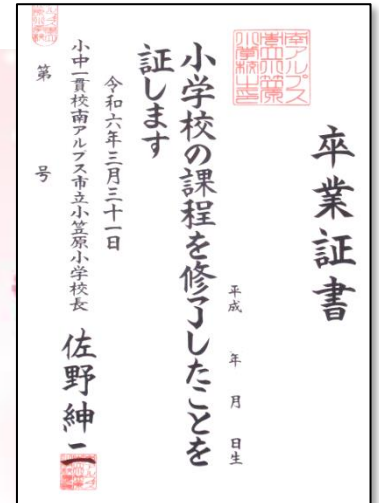 卒業証書
南アルプス
平成 年 月 日生
小学校の課程を修了したことを
証します
令和六年三月三十一日
小中一貫校南アルプス市立小笠原小学校長 佐野紳二
第 号